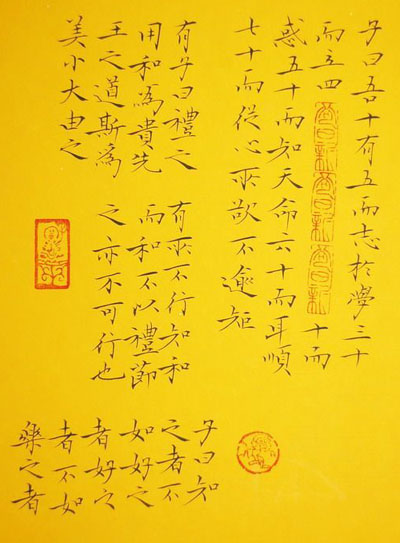 子曰吾十有五而志於學三十
而立四十而
惑五十而知天命六十而耳順
七十而從心所欲不逾矩
有子曰禮之
用和為貴先
王之道斯為
美小大由之
有所不行知和
而和不以禮節
之亦不可行也
子曰知
之者不
如好之
者好之
者不如
樂之者